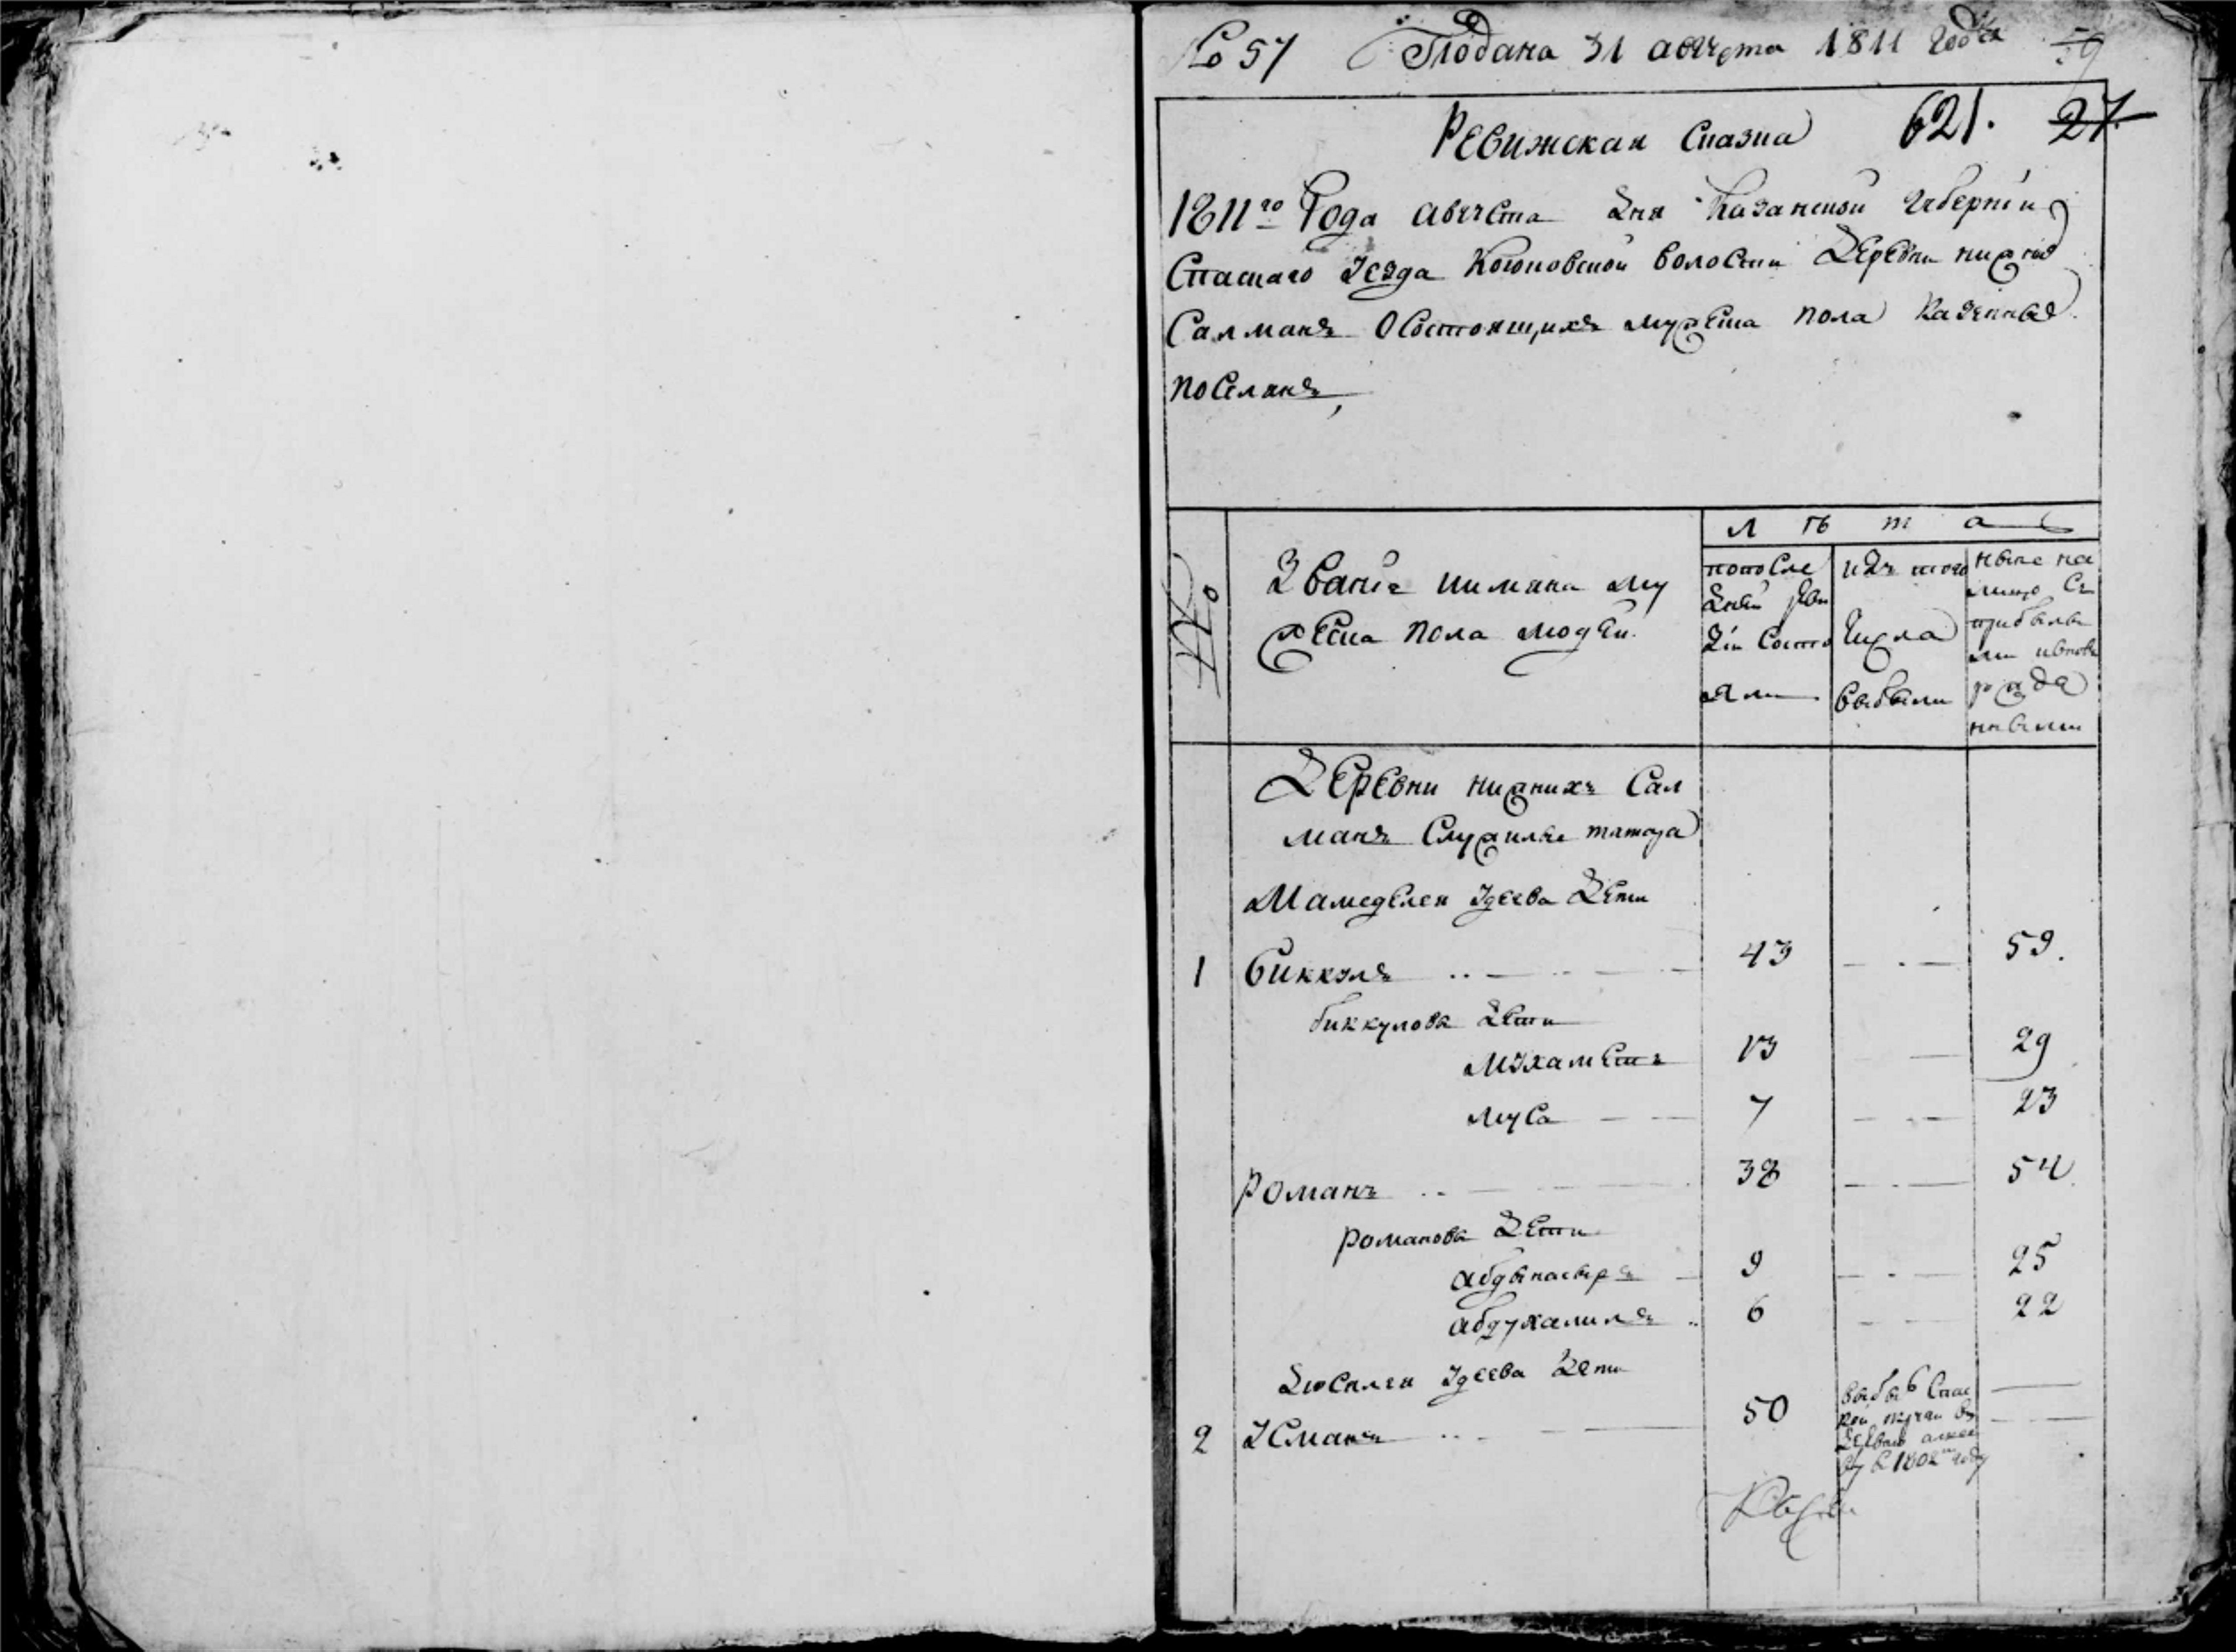 № 57 Подана 31 августа 1811 года 59
Ревижская Сказка 621. 27.
1811го Года августа дня Казанской губернии
Спаскаго уезда Кокоповской волости Деревни нижнѣ
Салманъ О Состоящихъ мужеска пола Казенныхъ
поселянъ,
№
Звание имяна му
жеска пола людей.
Л ѣ т а
попосле
дней реви
зіи состо
яли
изъ того
числа
выбыли
ныне на
лицо съ
прибылы
ми ивновь
рожде
нными
Деревни нижнихъ Сал
манъ Служилые татара
Мамеделея Удеева Дети
1 Биккулъ 43 59.
биккулова Дети
Мухаметъ 13 29
муса 7 23
романъ 38 54
романова Дети
абдынасыръ 9 25
абдухалилъ 6 22
Удеева Дети
2 Усманъ 50
въ 1802м году